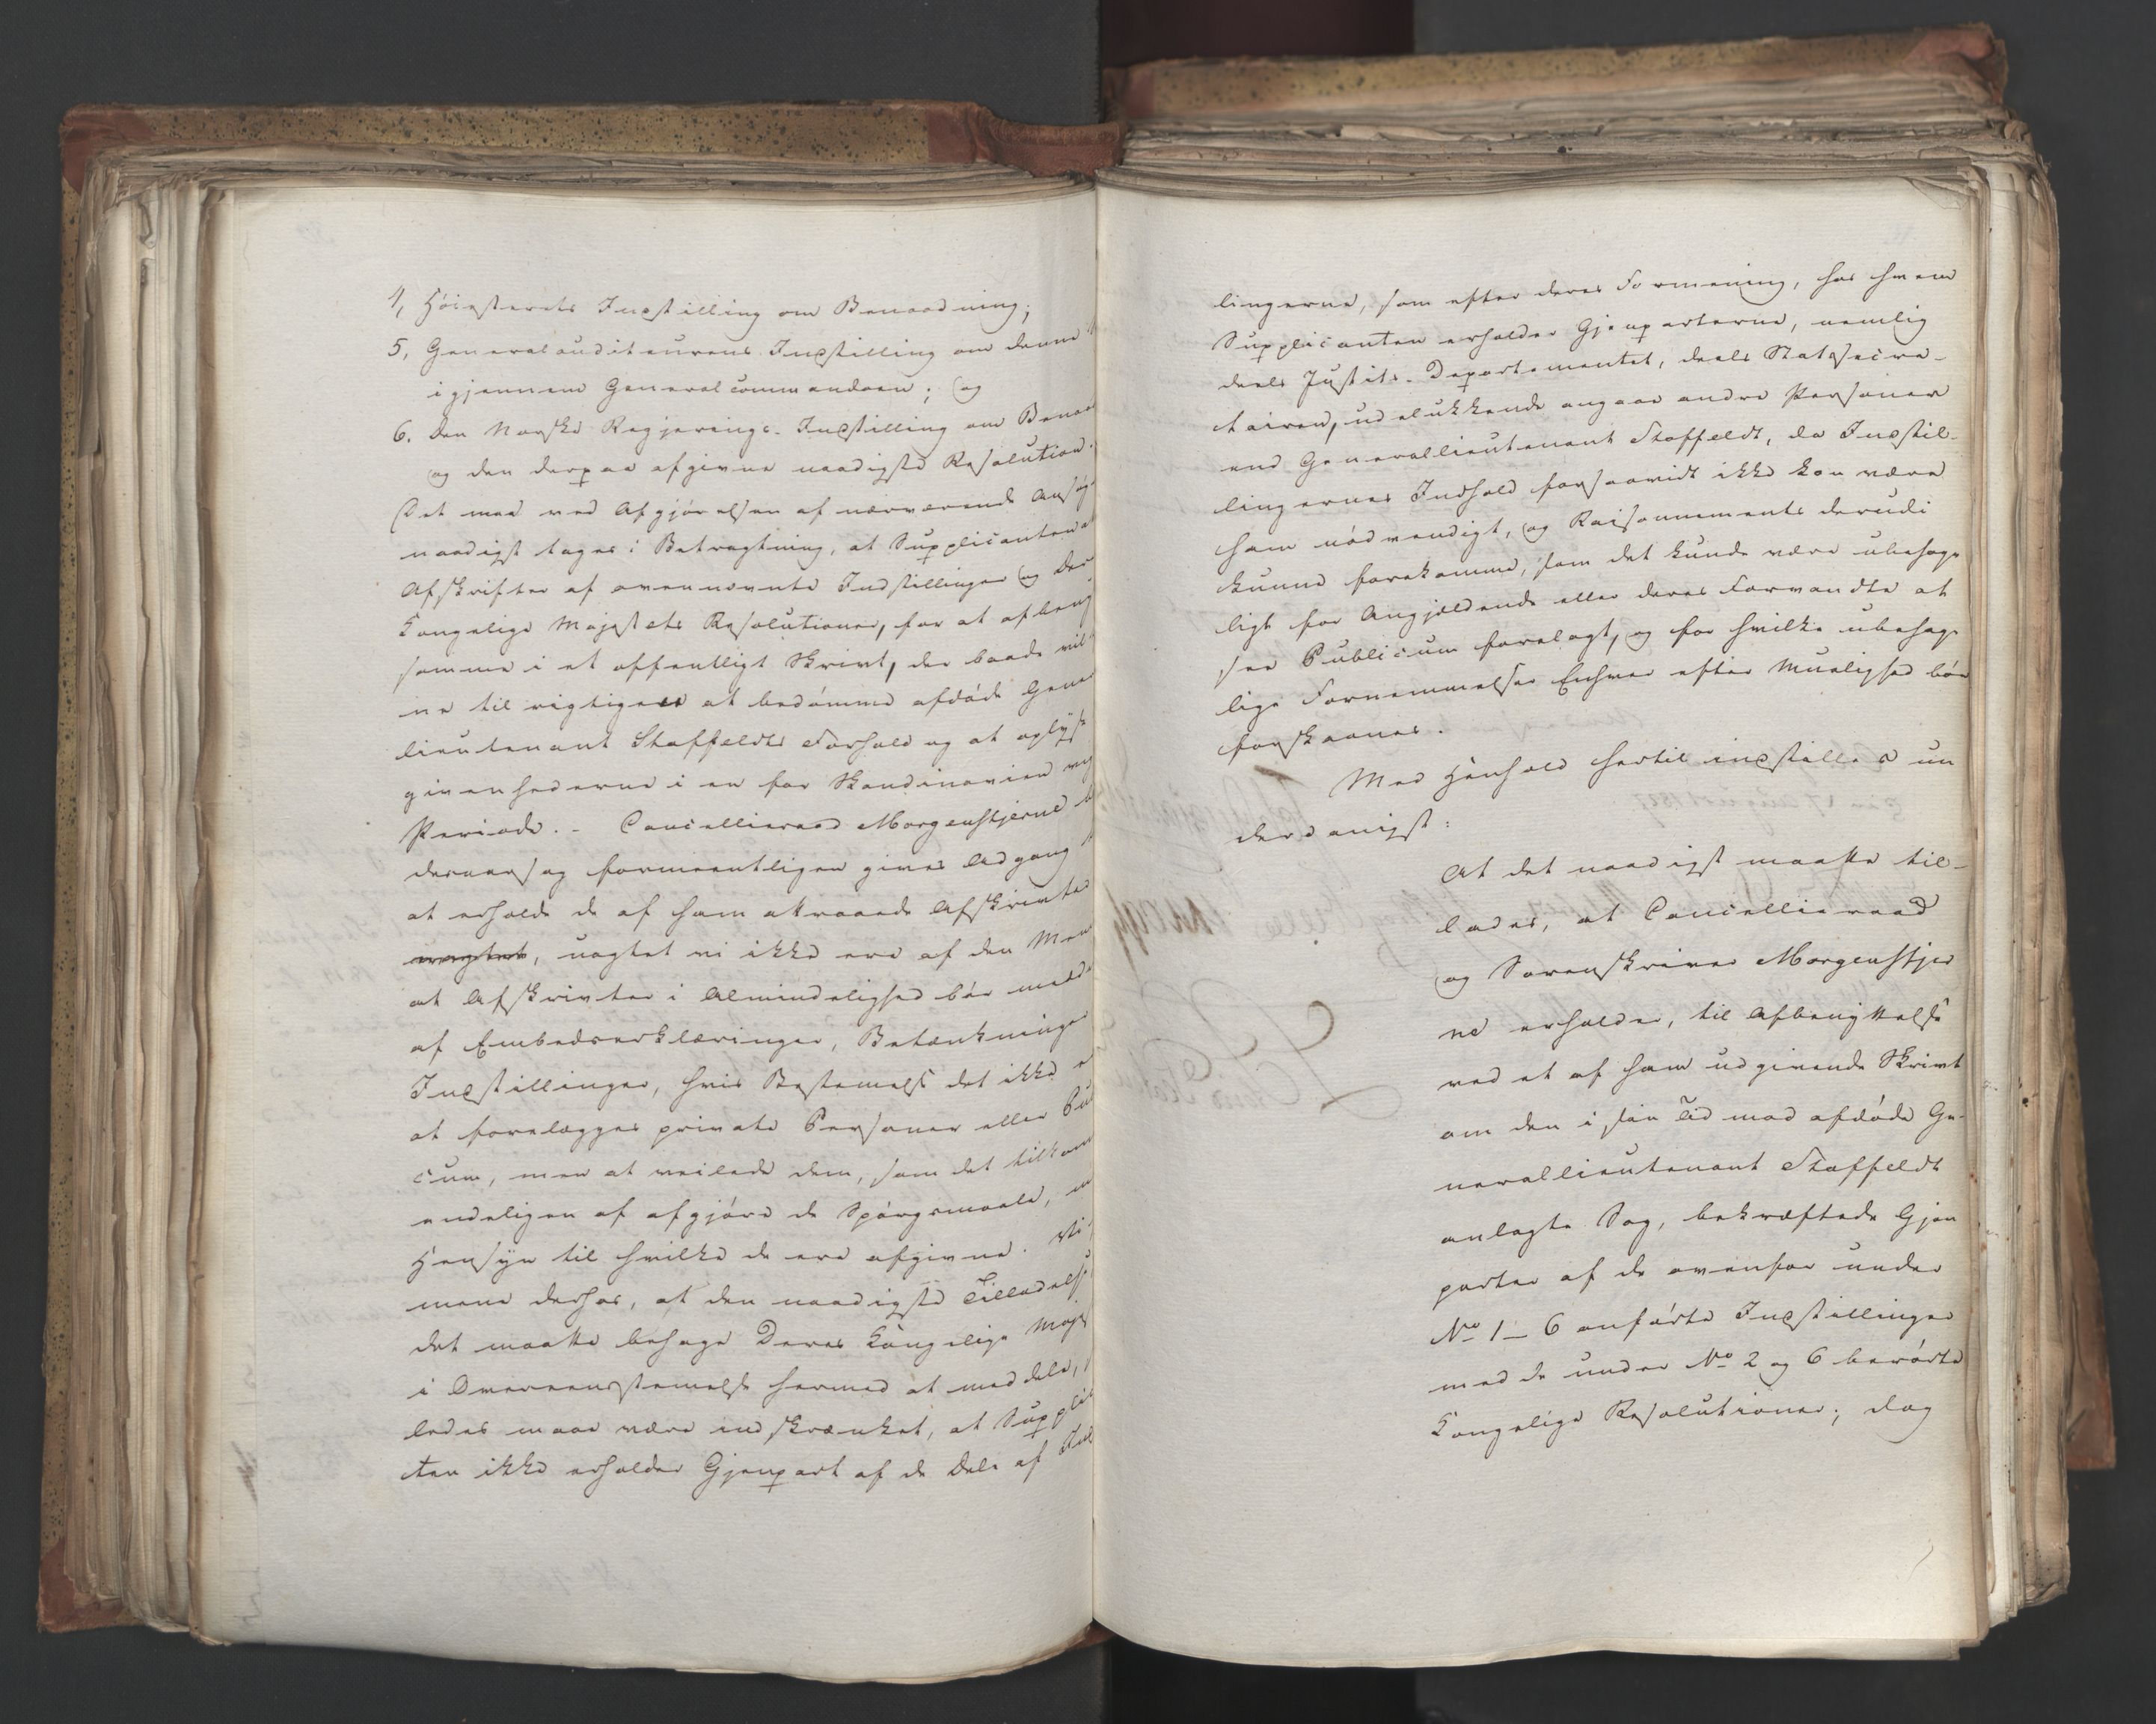 4, Höiesterets Indstilling om Benaadning;
5, Generalauditeurens Indstilling om denne
igjennem Generalcommandoen; og
6. Den Norske Regjerings-Indstilling om Benaad
og den derpaa afgivne naadigste Resolution.
Det maa ved Afgjörelsen af nærværende Ansög
naadigst tages i Betragtning, at Supplicanten
Afskrifter af ovennævnte Indstillinger og Deres
Kongelige Majestæts Resolutioner, for at afbenyt
samme i et offentligt Skrivt, der baade vil
ne til rigtigere at bedömme afdöde General
lieutenant Staffeldts Forhold og at oplyse
givenhederne i en for Skandinavien vig
Periode. - Cancellieraad Morgenstjerne
derven sag formeentligen gives Adgang
at erholde de af ham attraaede Afskrivter
uagtet, uagtet vi ikke ere af den Mening
at Afskrivter i Almindelighed bör medde
af Embedserklæringer, Betænkninger
Indstillinger, hvis Bestemelse det ikke er
at forelægges private Personer eller Pub
cum, men at veilede dem, som det tilkom
endeligen at afgjöre de Spörgsmaale, m
Hensyn til hvilke de ere afgivne. Vi
mene derhos, at den naadigste Tilladelse
det maatte behage Deres Kongelige Majes
i Overeensstemelse hermed at meddele,
ledes maae være indskrænket, at Supplic
ten ikke erholder Gjenpart af de Dele af Ind
lingerne, som efter deres Formening, hos hvem
Supplicanten erholder Gjenparterne, nemlig
deels Justits-Departementet, deels Statssecre-
tairen, udelukkende angaae andre Personer
end Generallieutenant Staffeldt, da Indstil-
lingernes Indhold forsaavidt ikke kan være
ham nödvendigt, og Raisonnements derudi
kunne forekomme, som det kunde være ubehage
ligt for Angjældende eller deres Forvandte at
see Publicum forelagt, og for hvilke ubehage
lige Fornemmelser Enhver efter Muelighed bör
forskaanes.
Med Henhold hertil indstilles un
derdanigst:
At det naadigst maatte til-
lades, at Cancellieraad
og Sorenskriver Morgenstjer
ne erholder, til Afbenyttelse
ved et af ham udgivende Skrivt
om den i sin Tid mod afdöde Ge-
nerallieutenant Staffeldt
anlagte Sag, bekræftede Gjen
parter af de ovenfor under
No 1-6 anförte Indstillinger
med de under No 2 og 6 berörte
Kongelige Resolutioner; dog